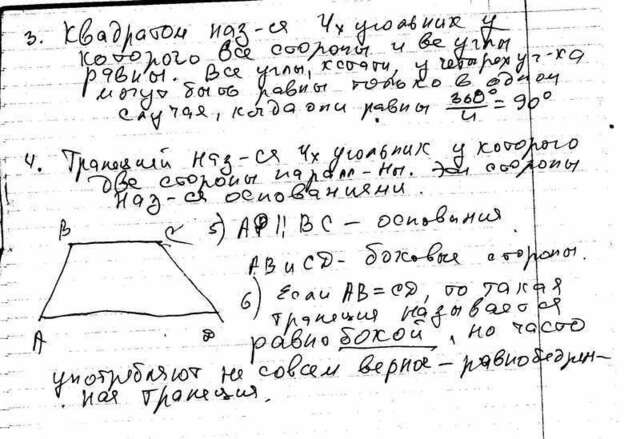 3. Квадратом наз-ся 4х угольник у
которого все стороны и все углы
равны. Все углы, кстати, у четырехуг-ка
могут быть равны только в одном
случая, когда они равны 360°/4 = 90°
4. Трапецией наз-ся 4х угольник у которого
две стороны паралл-ны. Эти стороны
наз-ся основаниями.
B C 5) AD || BC – основания
AB и CD – боковые стороны.
6) Если AB = CD, то такая
A D трапеция называется
равнобокой, но часто
употребляют не совсем верное – равнобедрен-
ная трапеция.